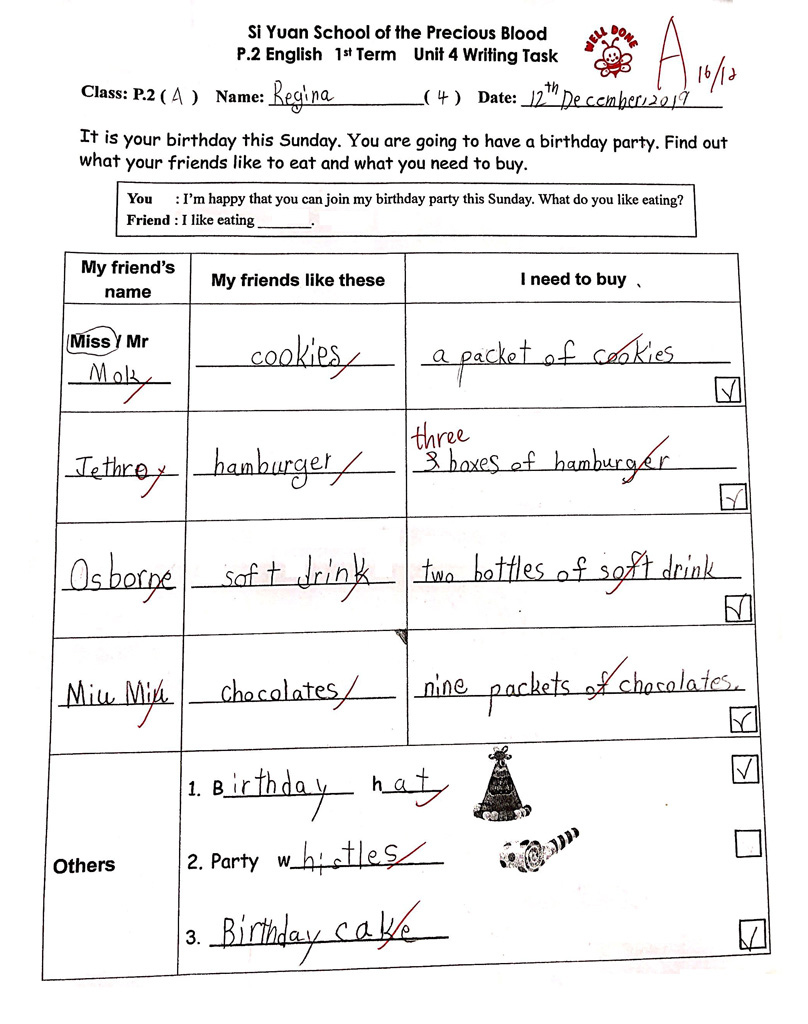 Si Yuan School of the Precious Blood
P.2 English 1st Term Unit 4 Writing Task
WELL DONE
A 16/12
Class: P.2 ( A ) Name: Regina ( 4 ) Date: 12th December, 2019
It is your birthday this Sunday. You are going to have a birthday party. Find out
what your friends like to eat and what you need to buy.
You : I'm happy that you can join my birthday party this Sunday. What do you like eating?
Friend : I like eating _______.
My friend's name
My friends like these
I need to buy
Miss / Mr
Mok
cookies
a packet of cookies
Jethro
hamburger
three
3 boxes of hamburger
Osborne
soft drink
two bottles of soft drink
Miu Miu
chocolates
nine packets of chocolates.
Others
1. Birthday hat
2. Party whistles
3. Birthday cake